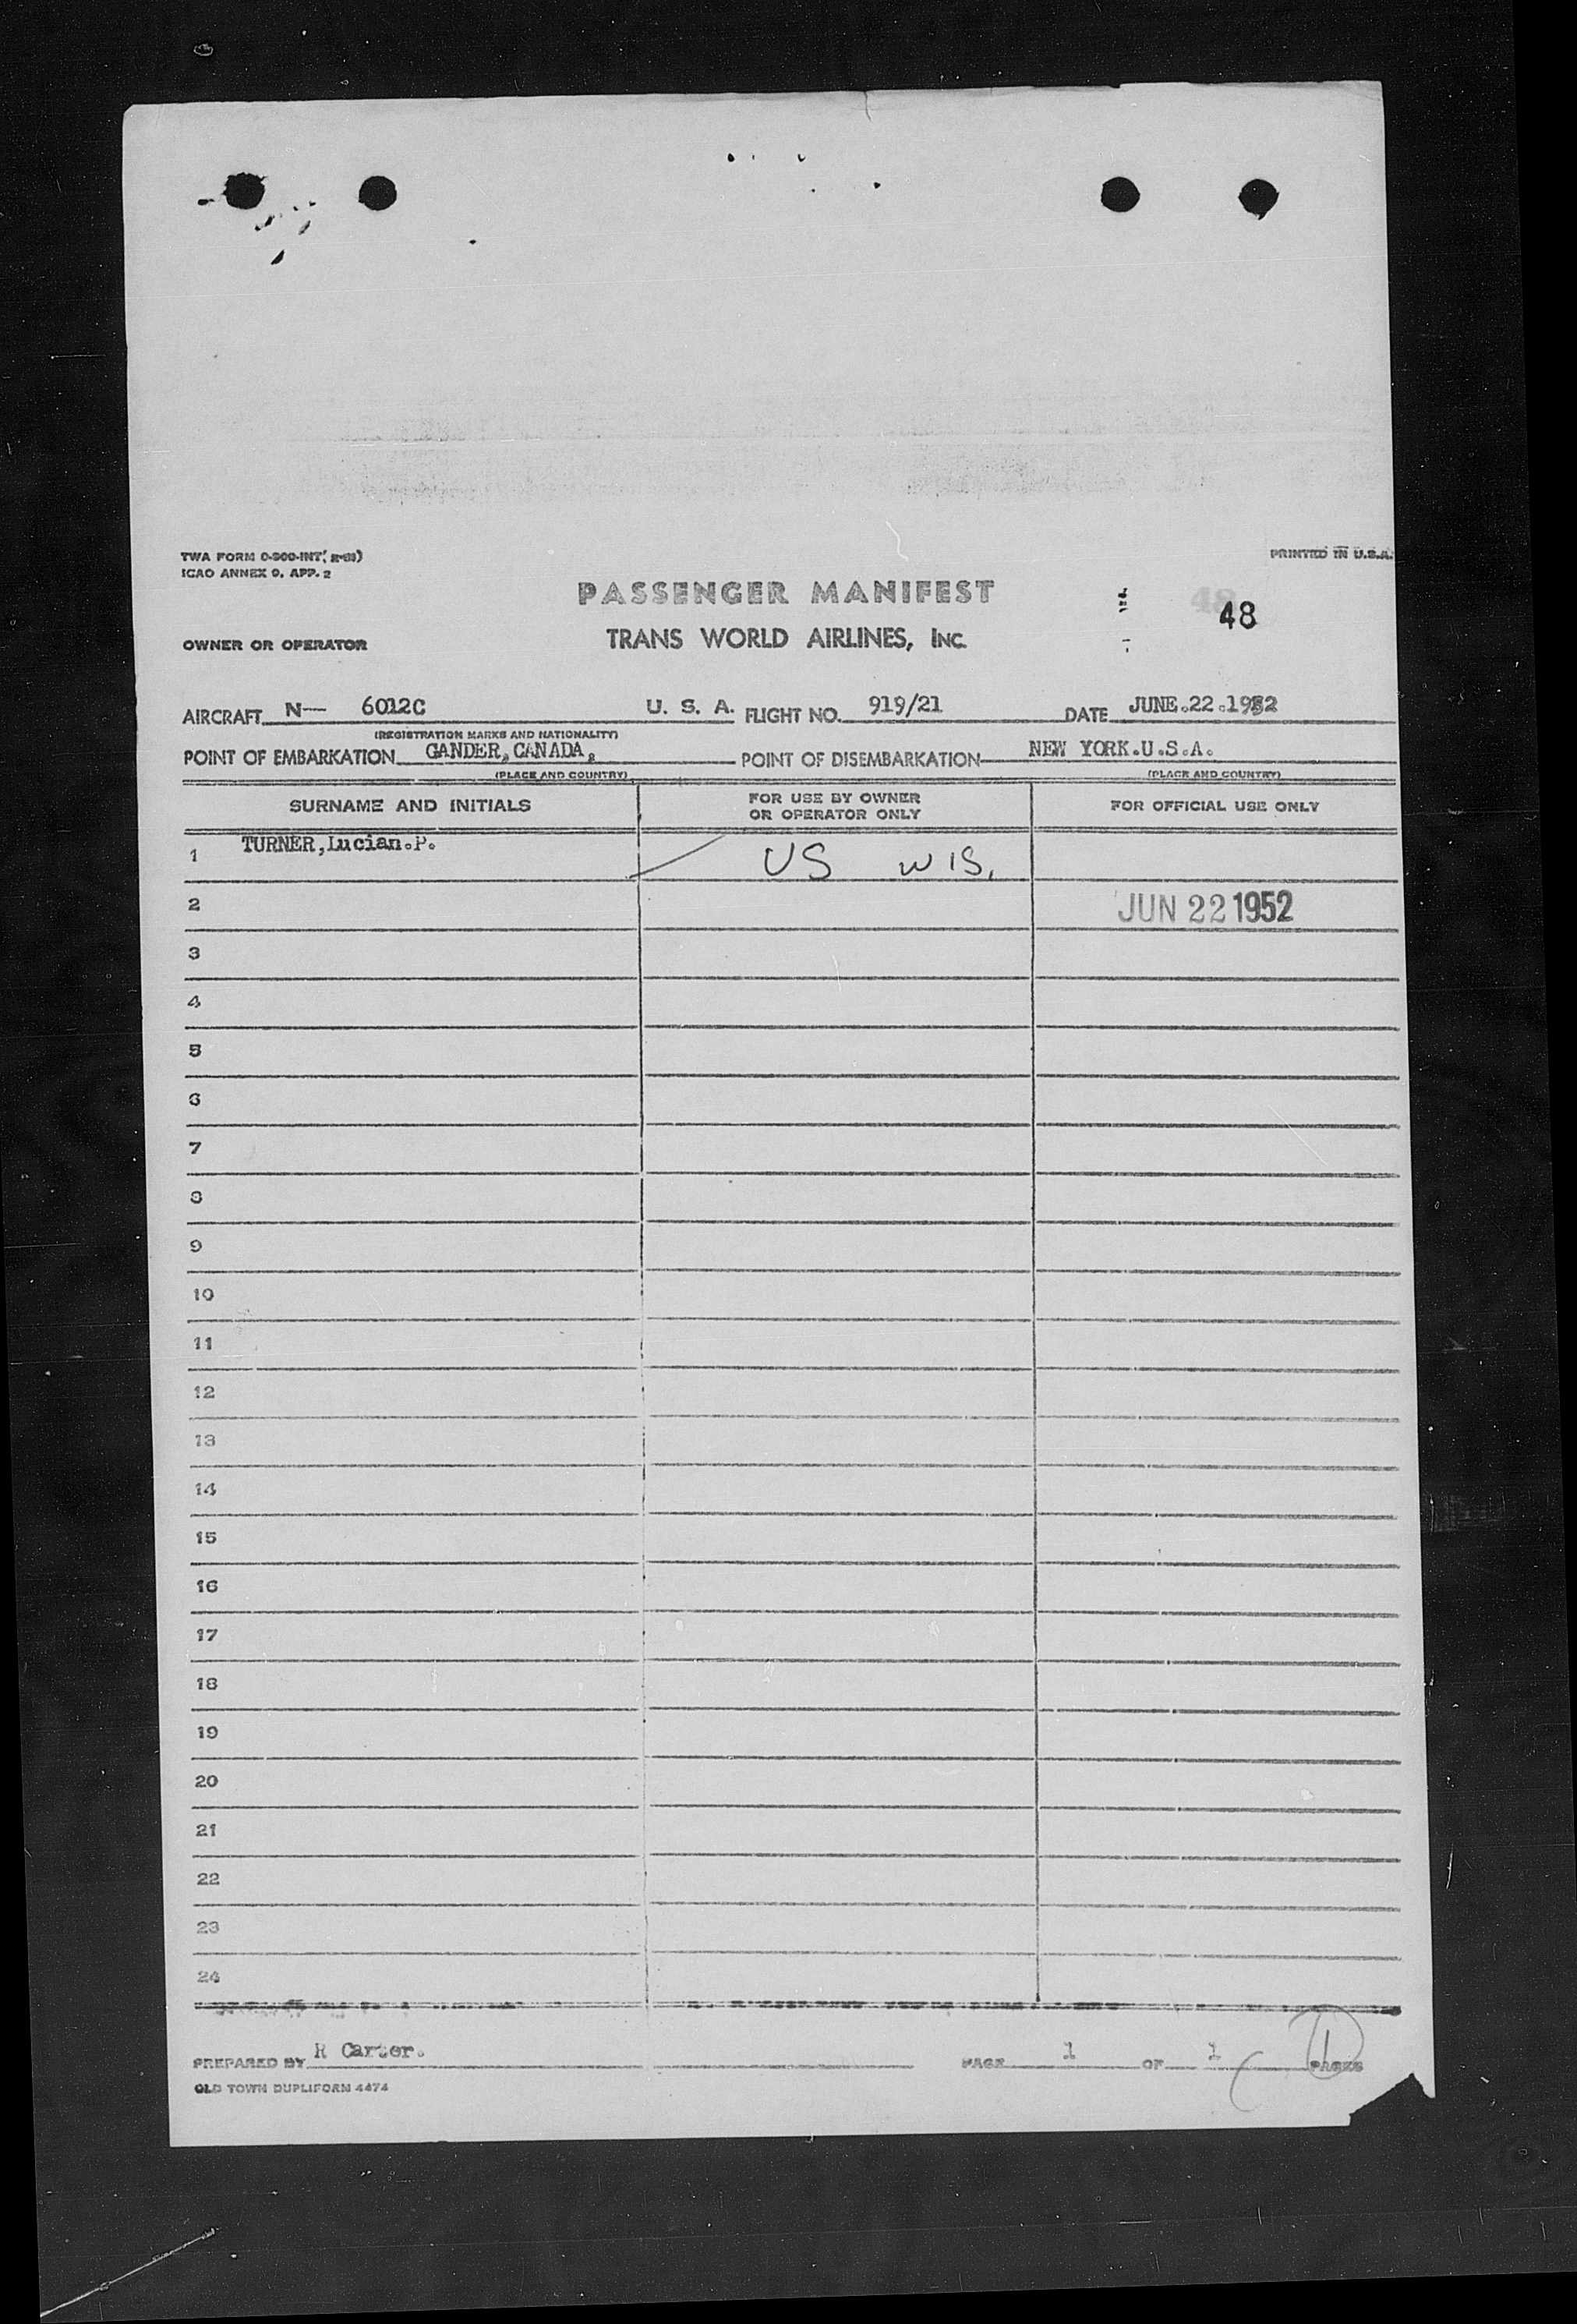 TWA FORM 0-900-INT
PRINTED IN U.S.A.
ICAO ANNEX 9, APP. 2
PASSENGER MANIFEST
48
OWNER OR OPERATOR
TRANS WORLD AIRLINES, INC.
AIRCRAFT N— 6012C U. S. A. FLIGHT NO. 919/21 DATE JUNE.22.1952
(REGISTRATION MARKS AND NATIONALITY)
POINT OF EMBARKATION GANDER,CANADA, POINT OF DISEMBARKATION NEW YORK.U.S.A.
(PLACE AND COUNTRY) (PLACE AND COUNTRY)
SURNAME AND INITIALS FOR USE BY OWNER OR OPERATOR ONLY FOR OFFICIAL USE ONLY
1 TURNER,Lucian.P. US WIS.
2 JUN 22 1952
3
4
5
6
7
8
9
10
11
12
13
14
15
16
17
18
19
20
21
22
23
24
PREPARED BY R Carter. PAGE 1 OF 1 PAGES
1
OLD TOWN DUPLIFORM 4474